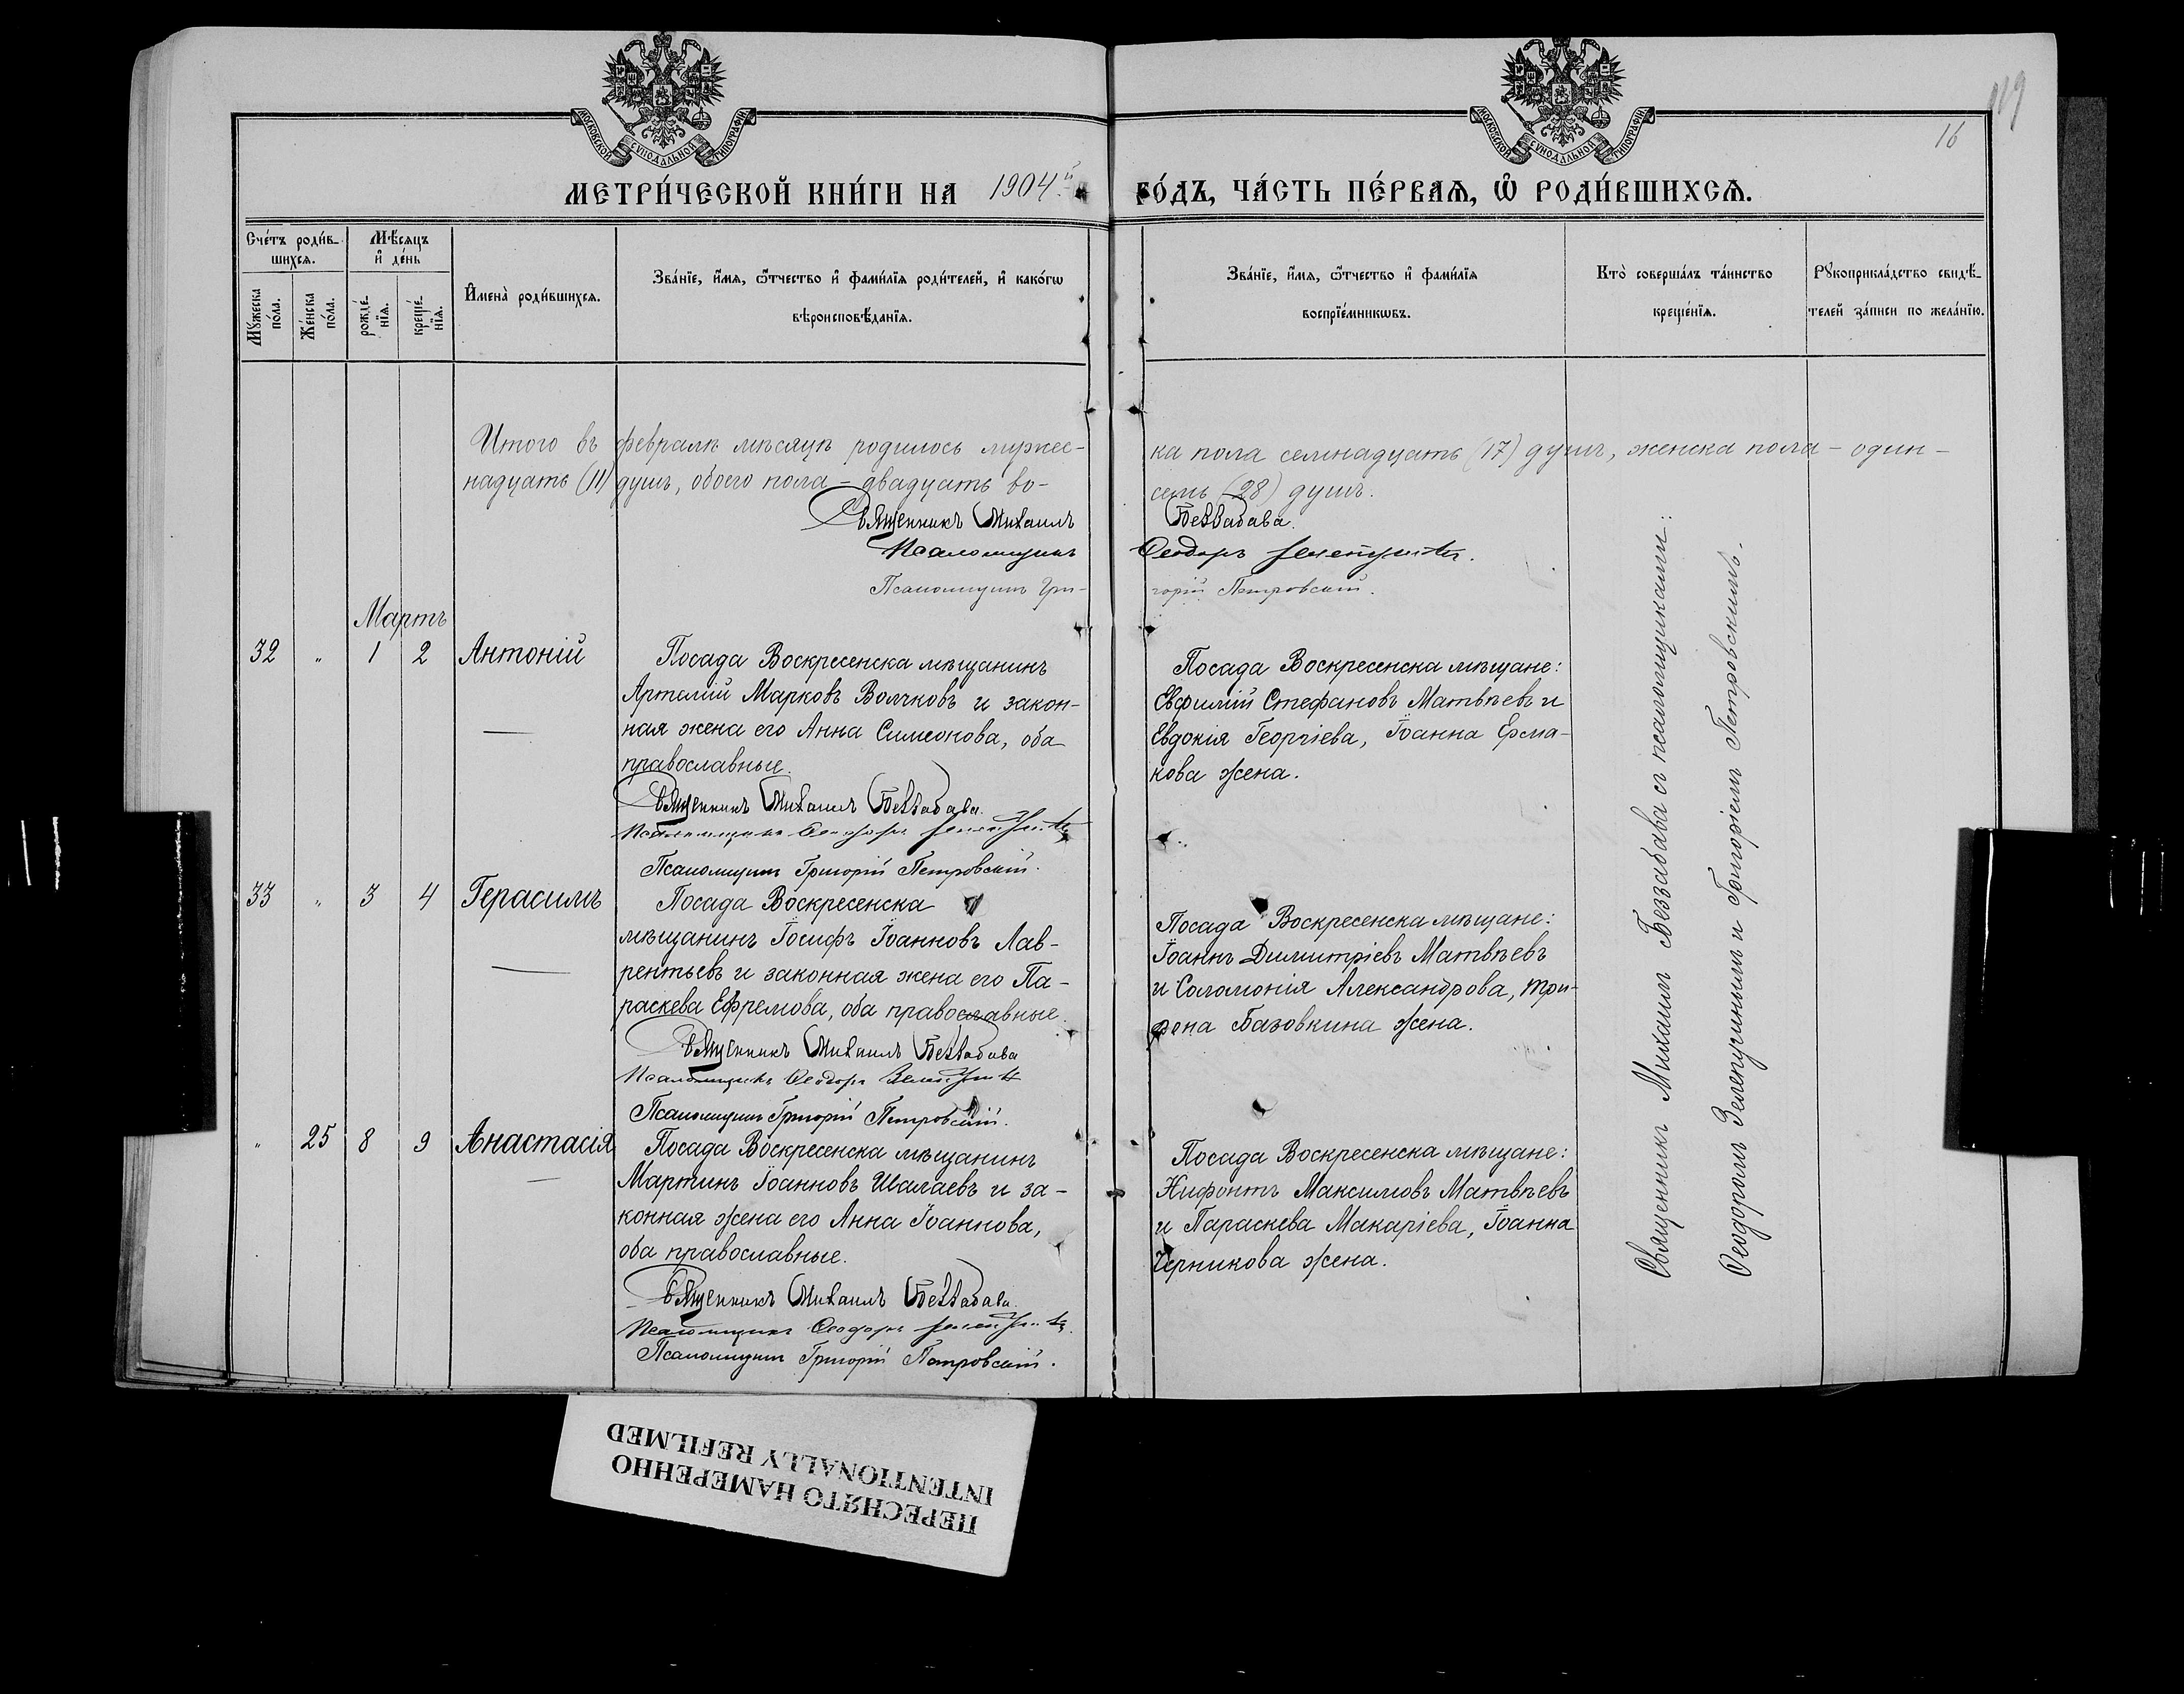 МОСКОВСКОЙ СѴНОДАЛЬНОЙ ТИПОГРАФІИ
МОСКОВСКОЙ СѴНОДАЛЬНОЙ ТИПОГРАФІИ
119
16
МЕТРИ́ЧЕСКОЙ КНИ́ГИ НА 1904й
ГО́ДЪ, ЧА́СТЬ ПЕ́РВАѦ, Ѽ РОДИ́ВШИХСѦ.
Сче́тъ роди́в-
шихсѧ.
Мꙋ́жеска
по́ла.
Же́нска
по́ла.
Мѣ́сѧцъ
и҆ де́нь
рожде́-
нїѧ.
креще́-
нїѧ.
И҆мена̀ роди́вшихсѧ.
Зва́нїе, и҆́мѧ, ѻ҆́тчество и҆ фами́лїѧ роди́телей, и҆ како́гѡ
вѣроисповѣ́данїѧ.
Зва́нїе, и҆́мѧ, ѻ҆́тчество и҆ фами́лїѧ
воспрїе́мникѡвъ.
Кто̀ соверша́лъ та́инство
креще́нїѧ.
Рꙋкоприкла́дство свидѣ́-
телей за́писи по жела́нїю.
Итого въ февралѣ мѣсяцѣ родилось мужес-
ка пола семнадцать (17) душъ, женска пола – один-
надцать (11) душъ, обоего пола – двадцать во-
семь (28) душъ.
Священникъ Михаилъ Беззабава.
Псаломщикъ Ѳеодоръ Зелепугинъ.
Псаломщикъ Григорій Петровскій.
Мартъ
32 " 1 2 Антоній
Посада Воскресенска мѣщанинъ
Артемій Марковъ Волчковъ и закон-
ная жена его Анна Симеонова, оба
православные.
Священникъ Михаилъ Беззабава.
Псаломщикъ Ѳеодоръ Зелепугинъ
Псаломщикъ Григорій Петровскій.
Посада Воскресенска мѣщане:
Евфимій Стефановъ Матвѣевъ и
Евдокія Георгіева, Іоанна Ерма-
кова жена.
33 " 3 4 Герасимъ
Посада Воскресенска
мѣщанинъ Іосифъ Іоанновъ Лав-
рентьевъ и законная жена его Па-
раскева Ефремова, оба православные.
Священникъ Михаилъ Беззабава
Псаломщикъ Ѳеодоръ Зелепугинъ
Псаломщикъ Григорій Петровскій.
Посада Воскресенска мѣщане:
Іоаннъ Димитріевъ Матвѣевъ
и Соломонія Александрова, Три-
фона Базовкина жена.
" 25 8 9 Анастасія
Посада Воскресенска мѣщанинъ
Мартинъ Іоанновъ Шалаевъ и за-
конная жена его Анна Іоаннова,
оба православные.
Священникъ Михаилъ Беззабава.
Псаломщикъ Ѳеодоръ Зелепугинъ.
Псаломщикъ Григорій Петровскій.
Посада Воскресенска мѣщане:
Нифонтъ Максимовъ Матвѣевъ
и Параскева Макаріева, Іоанна
Черникова жена.
Священникъ Михаилъ Беззабава съ псаломщиками:
Ѳеодоромъ Зелепугинымъ и Григоріемъ Петровскимъ.
ПЕРЕСНЯТО НАМЕРЕННО
INTENTIONALLY REFILMED